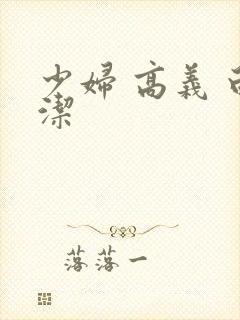 少婦 高義 白
潔
落落一